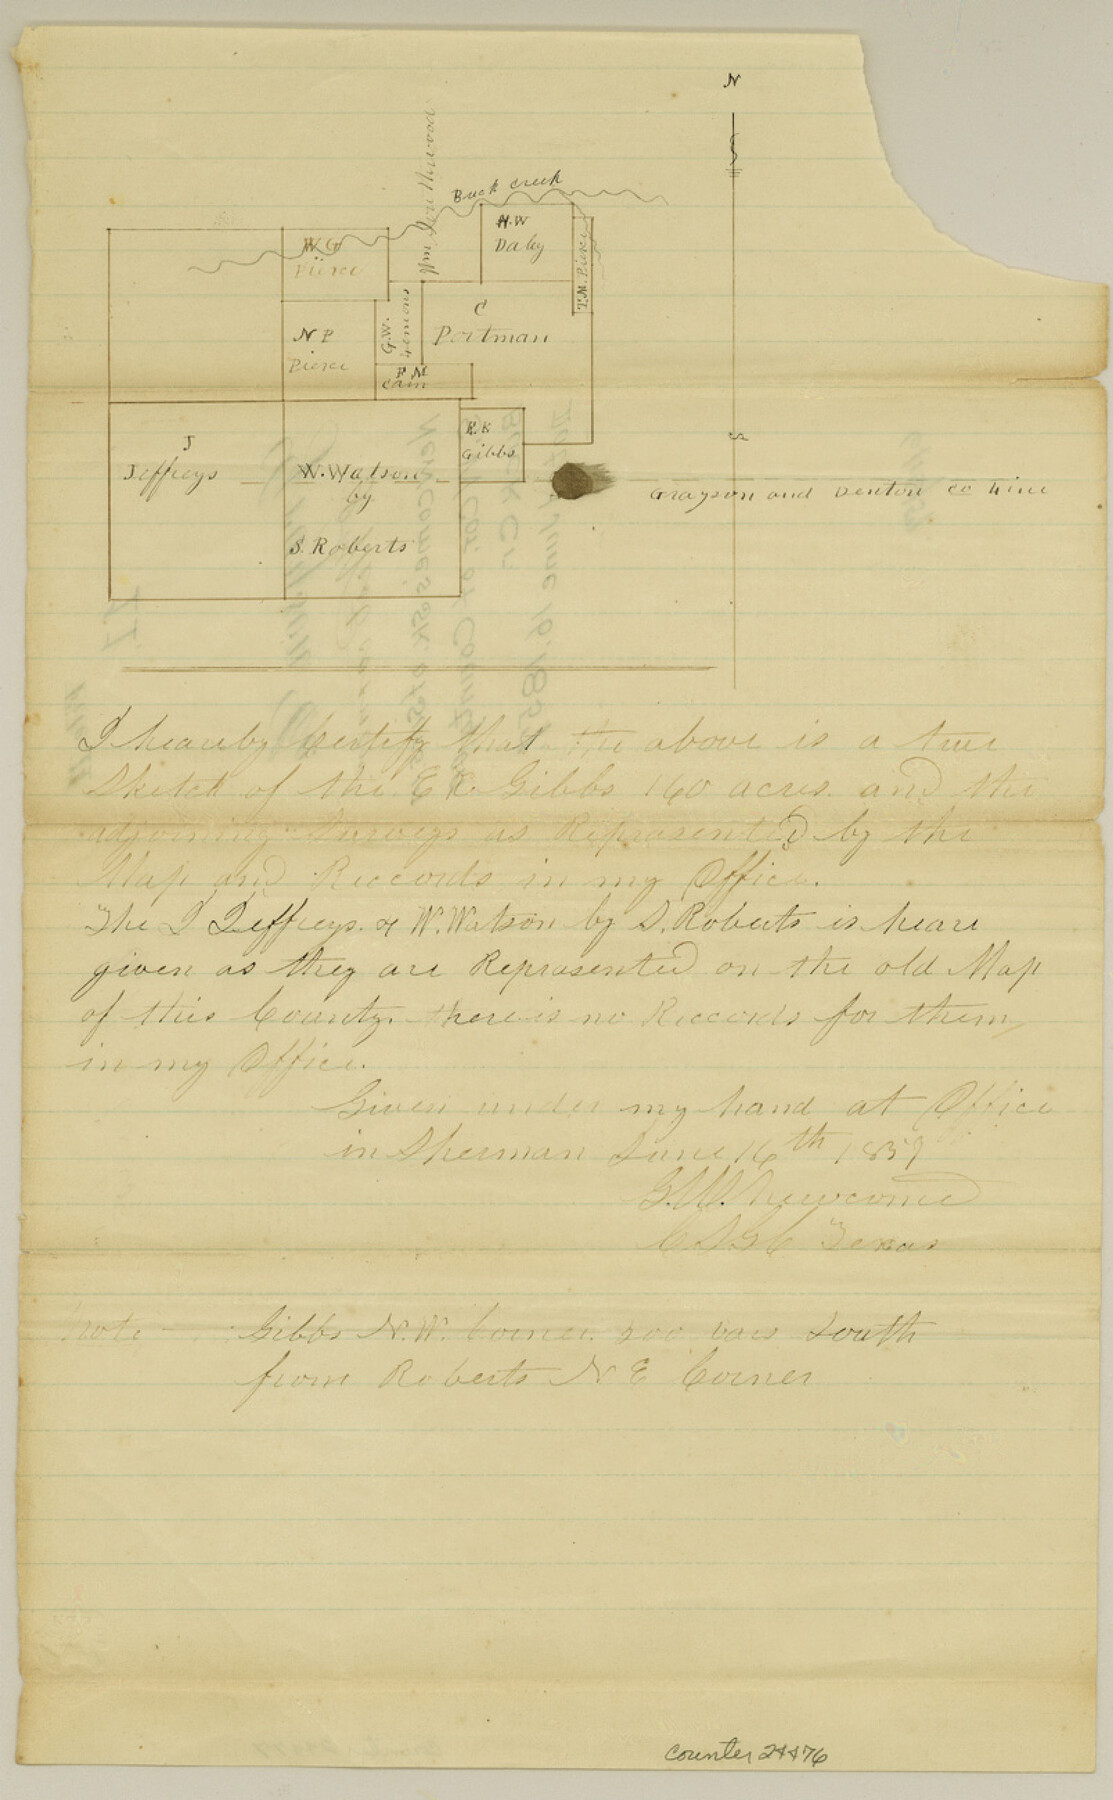 N
Buck creek
H.W
Daby
T.M. Pierce
W G
Pierce
C
Portman
G.W.
N P
Pierce
F M
Cain
E.K
Gibbs
J
Jeffreys
W. Watson
by
S. Roberts
S
Grayson and Denton co Line
I heareby Certify that the above is a true
Sketch of the E K. Gibbs 160 acres. and the
adjoining Surveys as Represented by the
Map and Reccords in my Office.
The J Jeffreys. & W. Watson by S. Roberts is heare
given as they are Represented on the old Map
of this County. there is no Reccords for them,
in my Office.
Given under my hand at Office
in Sherman June 16th 1859
Newcome
C S G C Texas
Note — Gibbs N.W. Corner. 200 vars South
from Roberts N E Corner
counter 24476